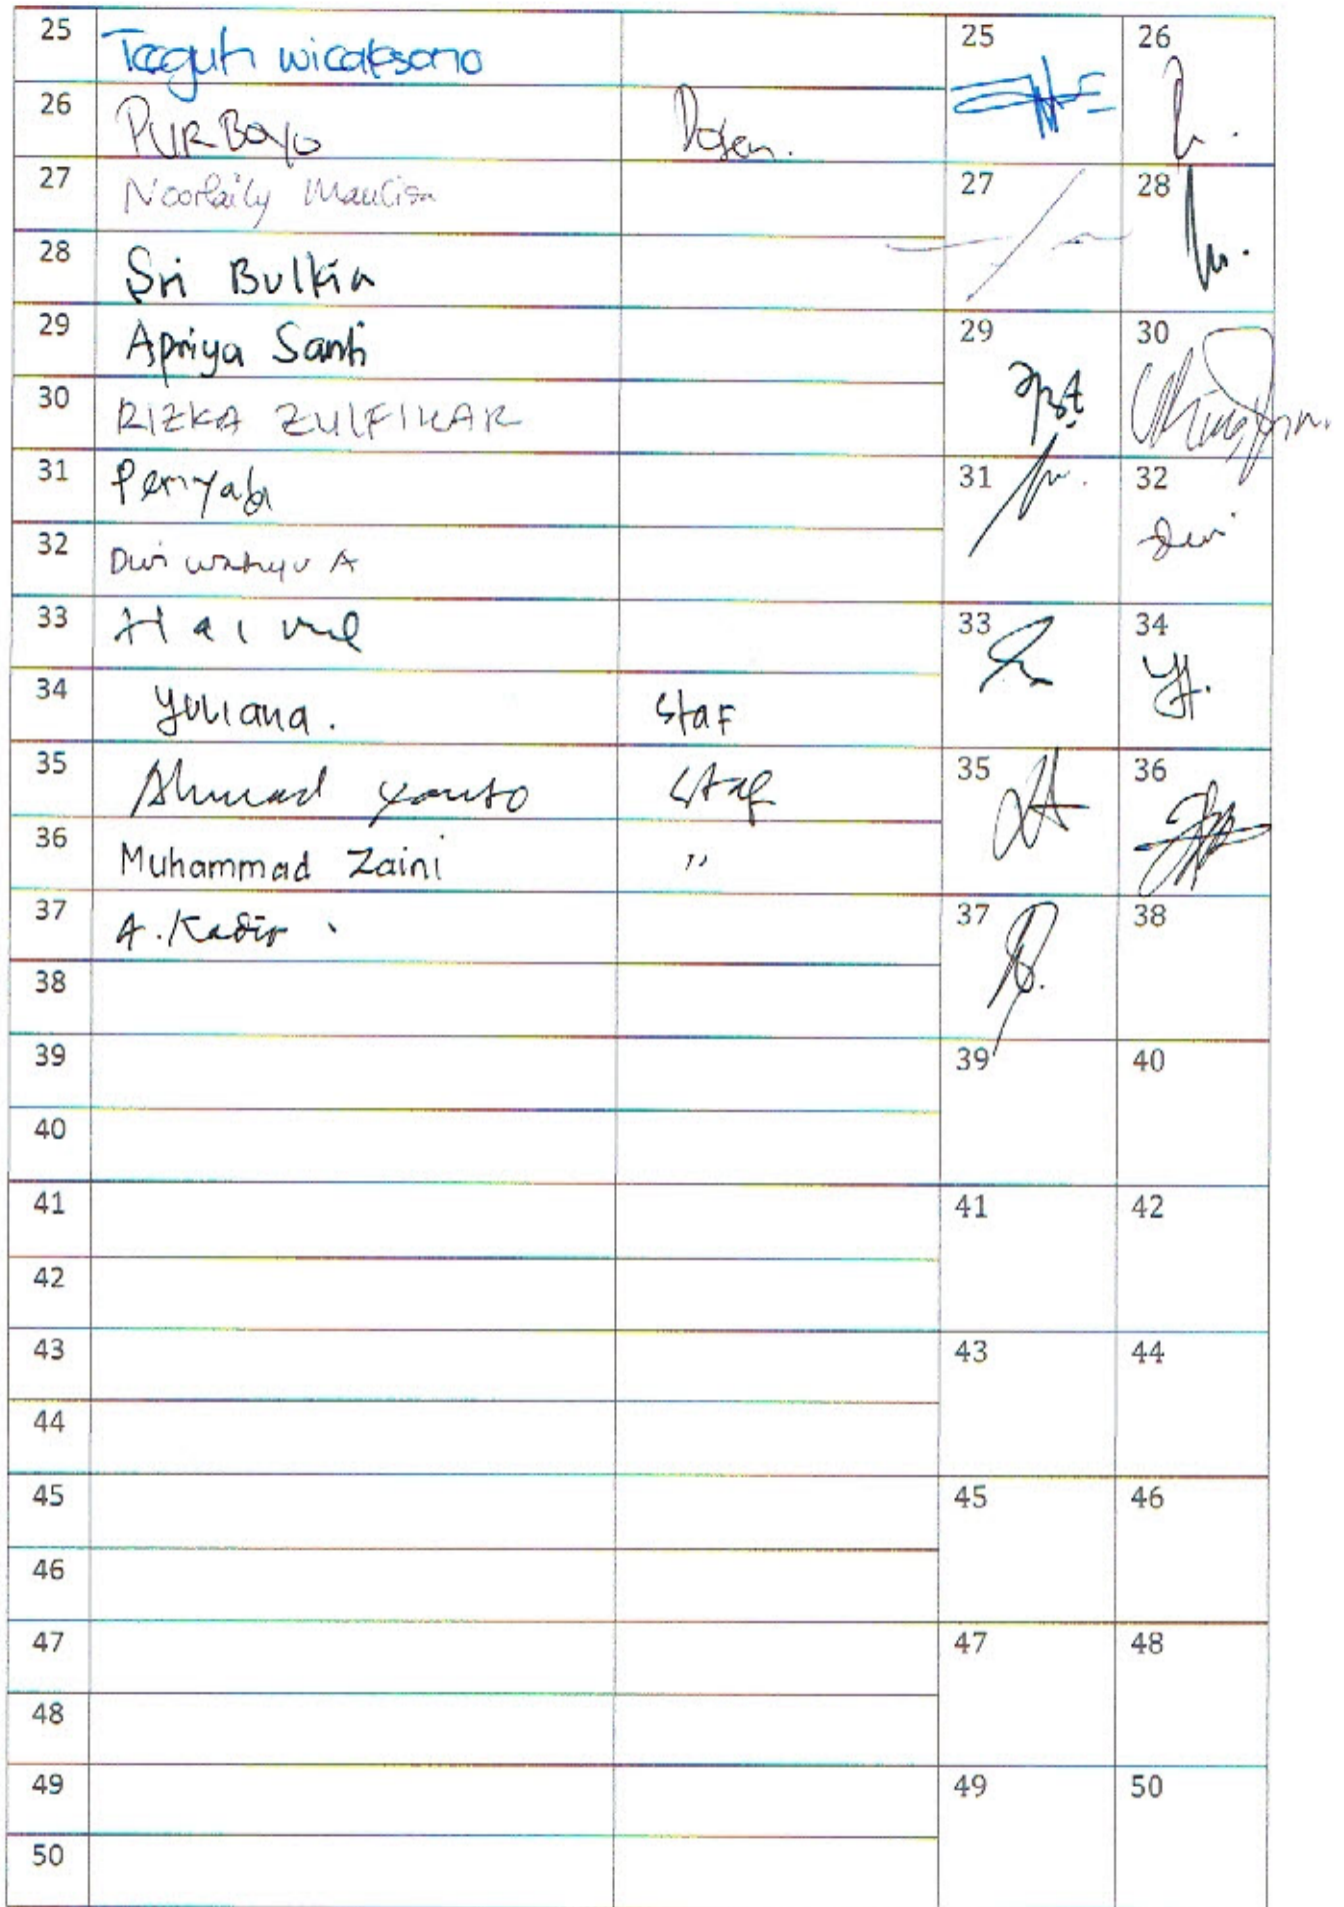 25 Teeguh wicaksono 25 26
26 PURBOYO Dosen.
27 Noorlaily Maulisa 27 28
28 Sri Bulkia
29 Apriya Santi 29 30
30 RIZKA ZULFIKAR
31 Periyadi 31 32
32 Dwi wahyu A dwi
33 33 34
34 Yuliana. Staf
35 Ahmad Yanto Staf 35 36
36 Muhammad Zaini "
37 A. Kadir 37 38
38
39 39 40
40
41 41 42
42
43 43 44
44
45 45 46
46
47 47 48
48
49 49 50
50